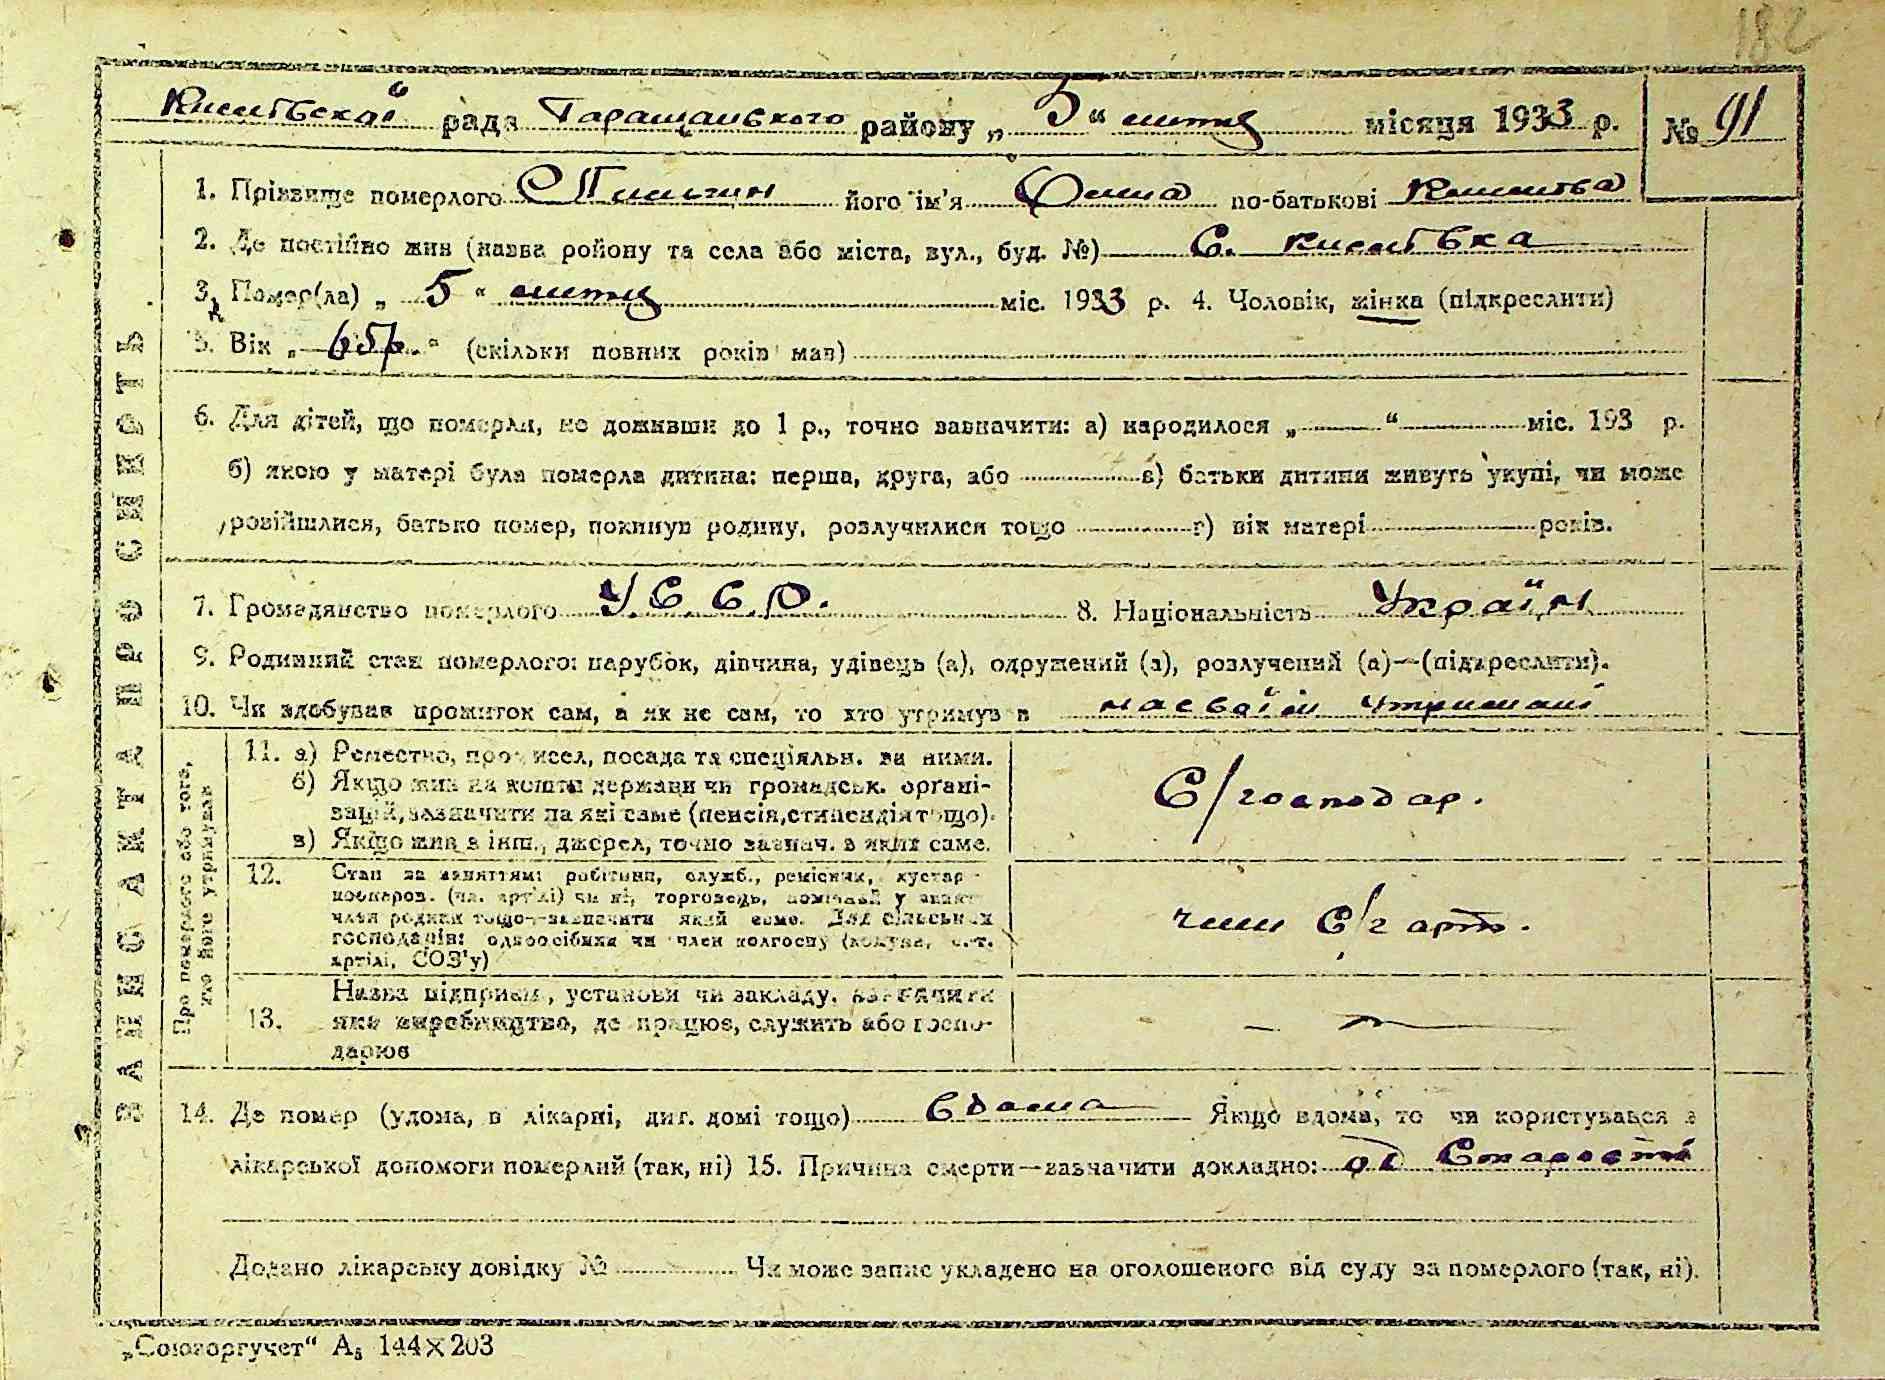 182
рада Таращанського району „ 5 “ місяця 1933 р. № 91
ЗАПИСКА ПРО СМЕРТЬ
1. Прізвище померлого його ім'я по-батькові
2. Де постійно жив (назва району та села або міста, вул., буд. №) С. Кислівка
3. Помер(ла) „ 5 “ міс. 1933 р. 4. Чоловік, жінка (підкреслити)
5. Вік „ 65р. “ (скільки повних років мав)
6. Для дітей, що померли, не доживши до 1 р., точно зазначити: а) народилося „ “ міс. 193 р.
б) якою у матері була померла дитина: перша, друга, або в) батьки дитини живуть укупі, чи може
розійшлися, батько помер, покинув родину, розлучилися тощо г) вік матері років.
7. Громадянство померлого У.С.С.Р. 8. Національність Україн
9. Родинний стан померлого: парубок, дівчина, удівець (а), одружений (а), розлучений (а)—(підкреслити).
10. Чи здобував прожиток сам, а як не сам, то хто утримував на своїй утримані
Про померлого або того, хто його утримував
11. а) Ремество, промисел, посада та спеціяльн. за ними.
б) Якщо жив на кошти держави чи громадськ. органі-
зацій, зазначити на які саме (пенсія, стипендія тощо).
в) Якщо жив з інш., джерел, точно зазнач. з яких саме.
С/господар.
12. Стан за заняттям: робітник, служб., ремісник, кустар
член родини тощо—зазначити який саме. Для сільських
господарів: одноосібник чи член колгоспу (комуна, с.-г.
артілі, СОЗ'у)
член С/г арт.
13. Назва підприєм., установи чи закладу, зазначити
яке виробництво, де працює, служить або госпо-
дарює
14. Де помер (удома, в лікарні, дит. домі тощо) вдома Якщо вдома, то чи користувався з
лікарської допомоги померлий (так, ні) 15. Причина смерти—зазначити докладно: од старости
Додано лікарську довідку № Чи може запис укладено на оголошеного від суду за померлого (так, ні).
„Союзоргучет“ А₅ 144×203